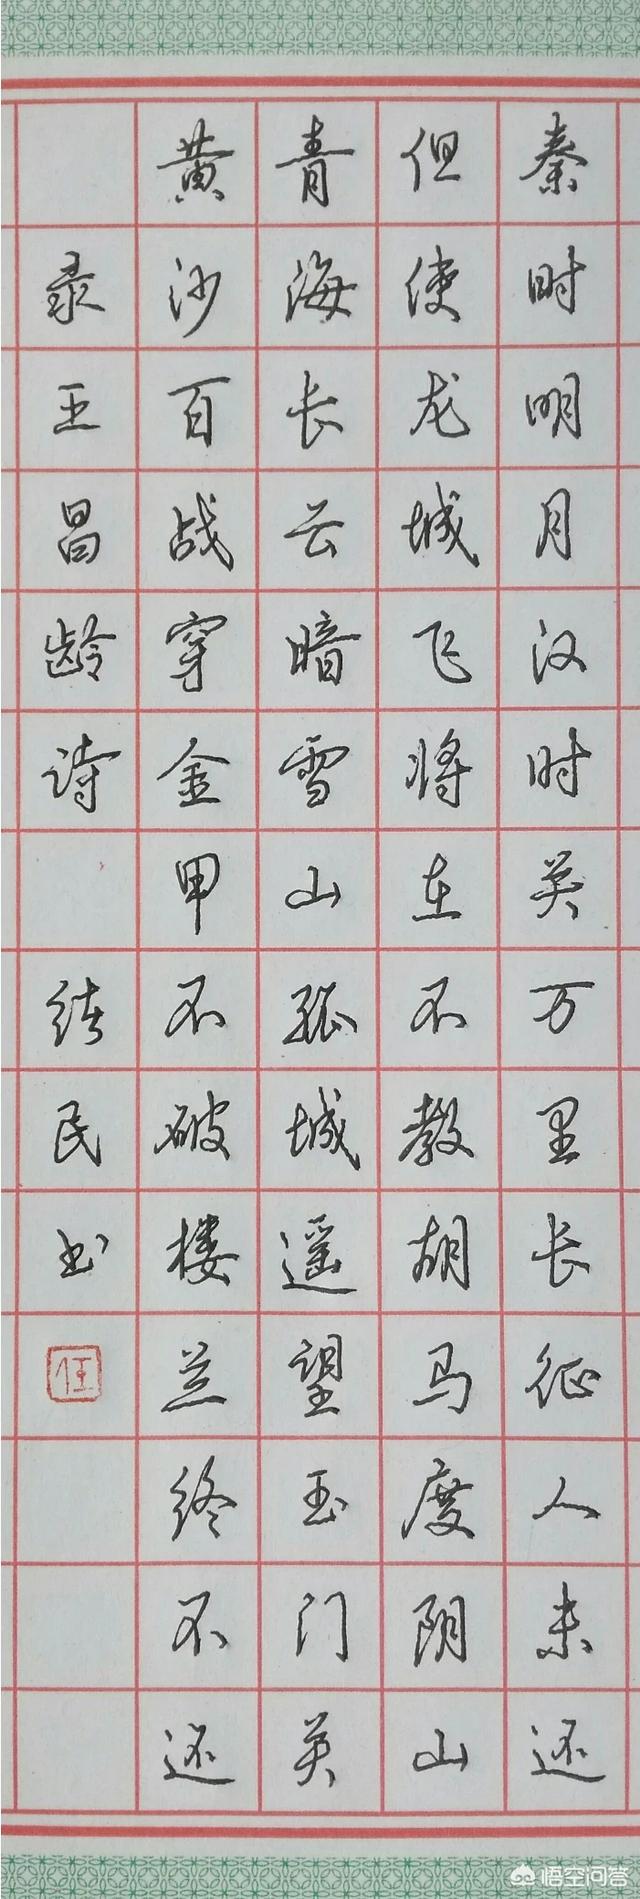 秦时明月汉时关万里长征人未还
但使龙城飞将在不教胡马度阴山
青海长云暗雪山孤城遥望玉门关
黄沙百战穿金甲不破楼兰终不还
录王昌龄诗 民书
任
悟空问答